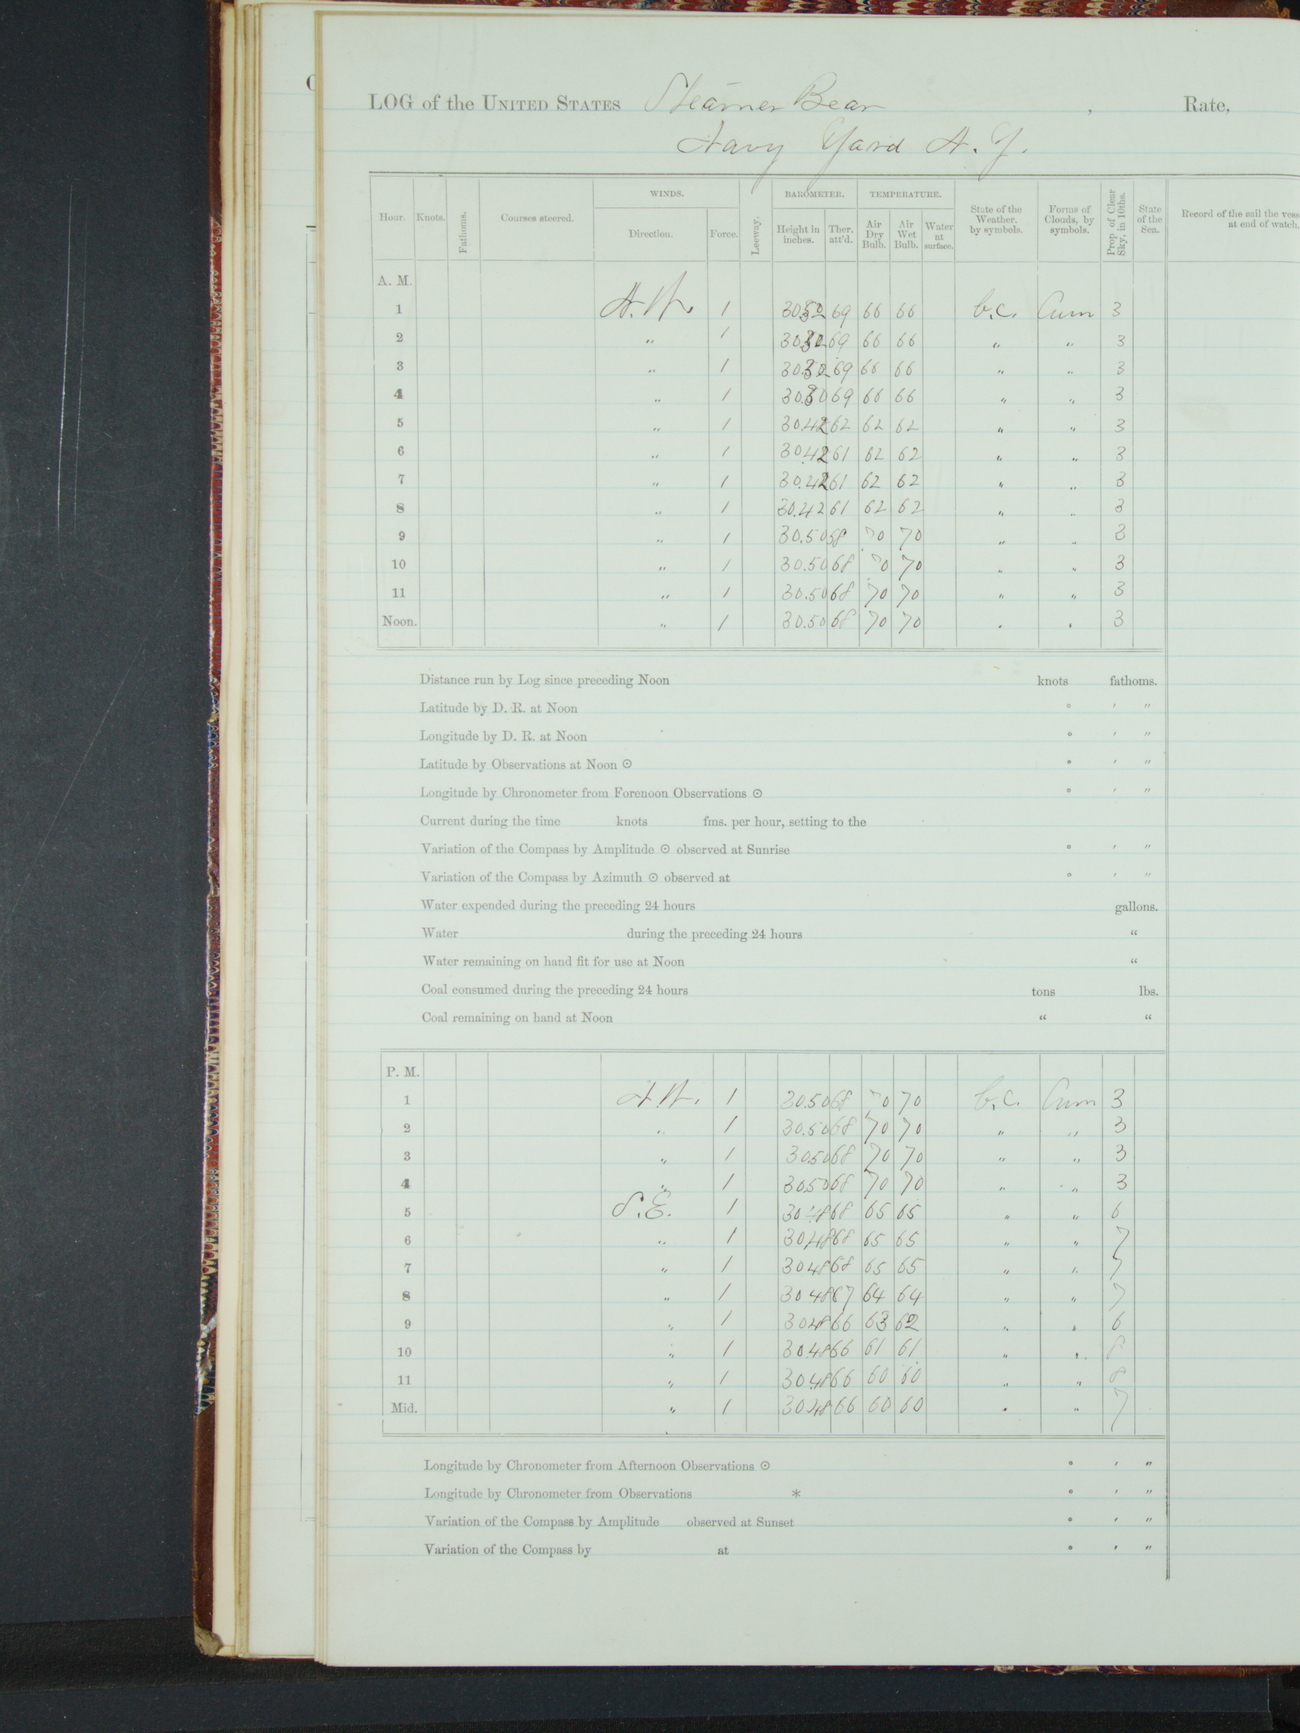 LOG of the UNITED STATES Steamer Bear , Rate,
Navy Yard N. Y.
WINDS. BAROMETER. TEMPERATURE.
Hour. Knots. Fathoms. Courses steered. Direction. Force. Leeway. Height in inches. Ther. att'd. Air Dry Bulb. Air Wet Bulb. Water at surface. State of the Weather, by symbols. Forms of Clouds, by symbols. Prop. of Clear Sky, in 10ths. State of the Sea. Record of the sail the vess
at end of watch,
A. M.
1 N.W. 1 69 66 66 b.c. Cum 3
2 " 1 69 66 66 " " 3
3 " 1 69 66 66 " " 3
4 " 1 30.30 69 66 66 " " 3
5 " 1 30.42 62 62 62 " " 3
6 " 1 30.42 61 62 62 " " 3
7 " 1 30.42 61 62 62 " " 3
8 " 1 30.42 61 62 62 " " 3
9 " 1 30.50 68 70 70 " " 3
10 " 1 30.50 68 70 70 " " 3
11 " 1 30.50 68 70 70 " " 3
Noon. " 1 30.50 68 70 70 " " 3
Distance run by Log since preceding Noon knots fathoms.
Latitude by D. R. at Noon ° ′ ″
Longitude by D. R. at Noon ° ′ ″
Latitude by Observations at Noon ⊙ ° ′ ″
Longitude by Chronometer from Forenoon Observations ⊙ ° ′ ″
Current during the time knots fms. per hour, setting to the
Variation of the Compass by Amplitude ⊙ observed at Sunrise ° ′ ″
Variation of the Compass by Azimuth ⊙ observed at ° ′ ″
Water expended during the preceding 24 hours gallons.
Water during the preceding 24 hours “
Water remaining on hand fit for use at Noon “
Coal consumed during the preceding 24 hours tons lbs.
Coal remaining on hand at Noon “ “
P. M.
1 N.W. 1 30.50 68 70 70 b.c. Cum 3
2 " 1 30.50 68 70 70 " " 3
3 " 1 30.50 68 70 70 " " 3
4 " 1 30.50 68 70 70 " " 3
5 S.E. 1 30.48 68 65 65 " " 6
6 " 1 30.48 68 65 65 " " 7
7 " 1 30.48 68 65 65 " " 7
8 " 1 30.48 67 64 64 " " 7
9 " 1 30.48 66 63 62 " " 6
10 " 1 30.48 66 61 61 " " 8
11 " 1 30.48 66 60 60 " " 8
Mid. " 1 30.48 66 60 60 " " 7
Longitude by Chronometer from Afternoon Observations ⊙ ° ′ ″
Longitude by Chronometer from Observations * ° ′ ″
Variation of the Compass by Amplitude observed at Sunset ° ′ ″
Variation of the Compass by at ° ′ ″